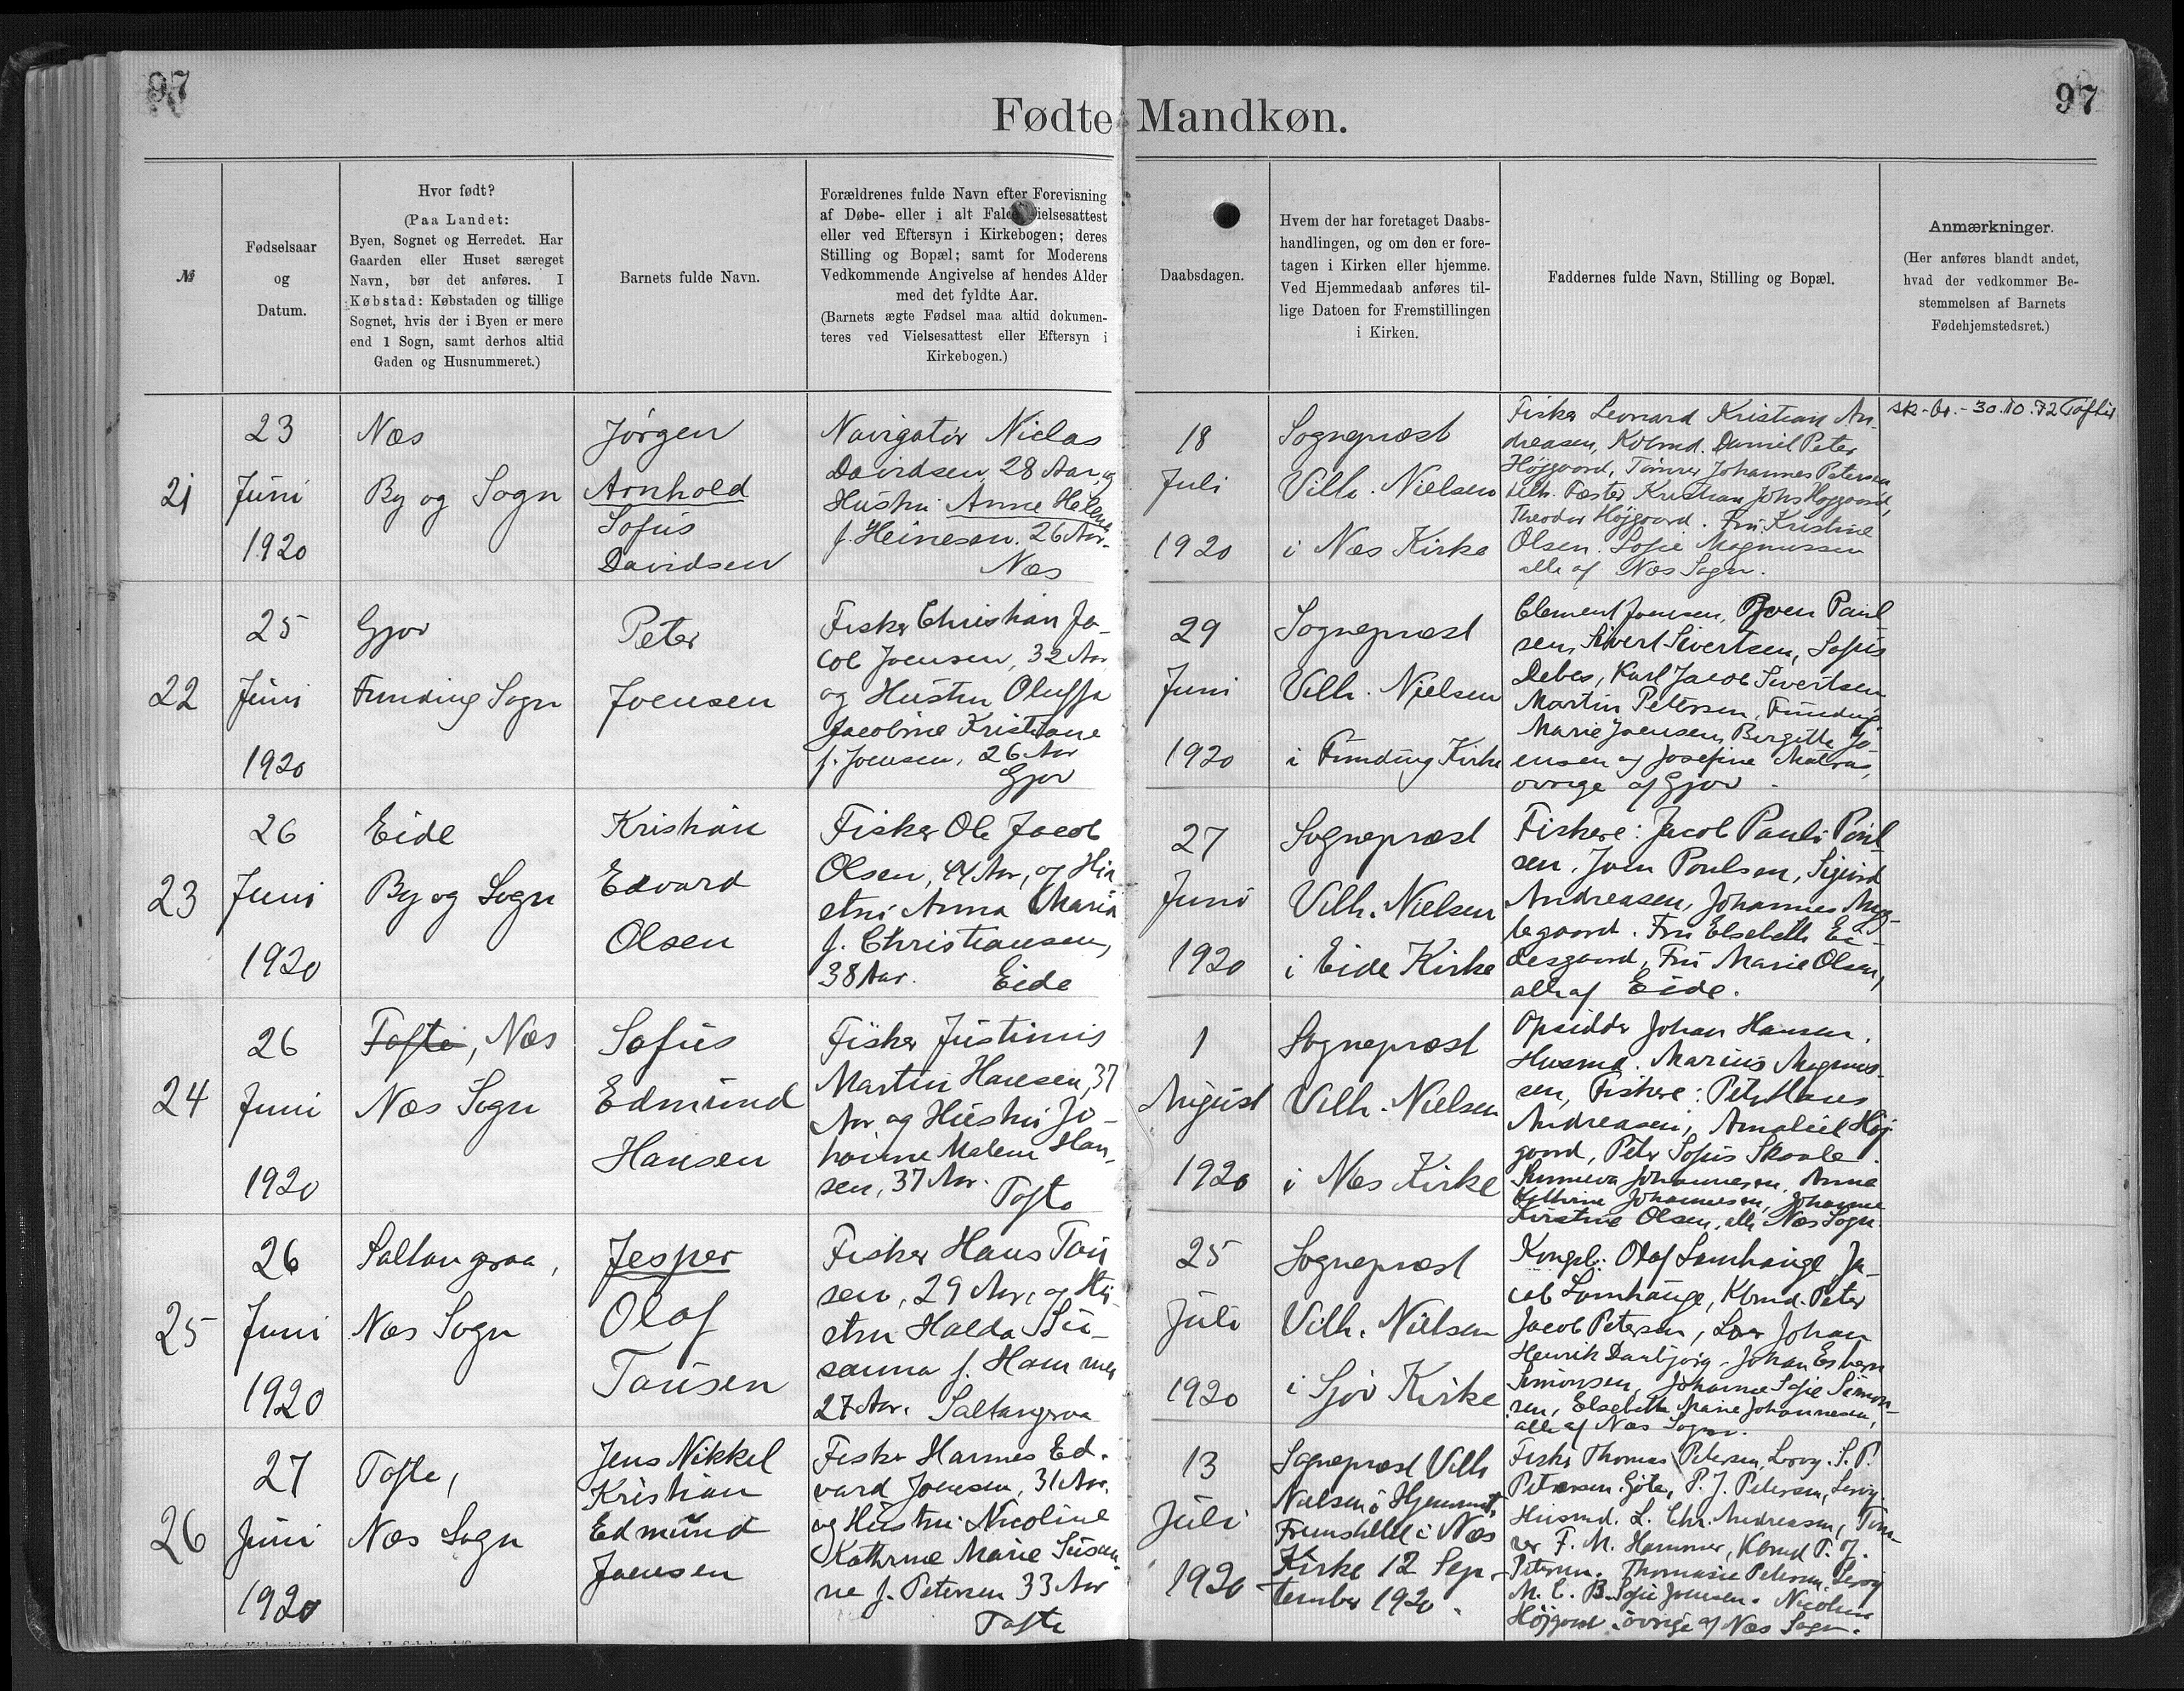 97
97
Fødte Mandkøn.
№
Fødselsaar
og
Datum.
Hvor født?
(Paa Landet:
Byen, Sognet og Herredet. Har
Gaarden eller Huset særeget
Navn, bør det anføres. I
Købstad: Købstaden og tillige
Sognet, hvis der i Byen er mere
end 1 Sogn, samt derhos altid
Gaden og Husnummeret.)
Barnets fulde Navn.
Forældrenes fulde Navn efter Forevisning
af Døbe- eller i alt Fald Vielsesattest
eller ved Eftersyn i Kirkebogen; deres
Stilling og Bopæl; samt for Moderens
Vedkommende Angivelse af hendes Alder
med det fyldte Aar.
(Barnets ægte Fødsel maa altid dokumen-
teres ved Vielsesattest eller Eftersyn i
Kirkebogen.)
Daabsdagen.
Hvem der har foretaget Daabs-
handlingen, og om den er fore-
tagen i Kirken eller hjemme.
Ved Hjemmedaab anføres til-
lige Datoen for Fremstillingen
i Kirken.
Faddernes fulde Navn, Stilling og Bopæl.
Anmærkninger.
(Her anføres blandt andet,
hvad der vedkommer Be-
stemmelsen af Barnets
Fødehjemstedsret.)
21
23
Juni
1920
Næs
By og Sogn
Jørgen
Arnhold
Sofus
Davidsen
Navigatør Niclas
Davidsen, 28 Aar, og
Hustru Anne Helene
f. Heinesen. 26 Aar.
Næs
18
Juli
1920
Sognepræst
Vilh. Nielsen
i Næs Kirke
Fisker Leonard Kristian An-
dreasen, Købmd. Daniel Peter
Højgaard, Tømrer Johannes Petersen
Kristian Johs Højgaard,
Theodor Højgaard. Fru Kristine
Olsen. Sofie Magnussen
alle af Næs Sogn.
sk-br.-30.10.72 Toftir
22
25
Juni
1920
Gjov
Funding Sogn
Peter
Joensen
Fisker Christian Ja-
cob Joensen, 32 Aar
og Hustru Oluffa
Jacobine Kristiane
f. Joensen, 26 Aar
Gjov
29
Juni
1920
Sognepræst
Vilh. Nielsen
i Funding Kirke
Clement Joensen, Poul
sen, Sivert Sivertsen, Sofus
Debes, Karl Jacob Sivertsen
Martin Petersen, Funding
Marie Joensen, Birgitte Jo-
ensen og Josefine
øvrige af Gjov.
23
26
Juni
1920
Eide
By og Sogn
Kristian
Edvard
Olsen
Fisker Ole Jacob
Olsen, 44 Aar, og Hu-
stru Anna Maria
f. Christiansen,
38 Aar. Eide
27
Juni
1920
Sognepræst
Vilh. Nielsen
i Eide Kirke
Fiskere: Jacob Pauli Poul
sen, Joen Poulsen, Sigurd
Andreasen, Johannes Myg-
legaard. Fru Elsebeth Ei-
desgaard, Fru Marie Olsen,
alle af Eide.
24
26
Juni
1920
Tofte, Næs
Næs Sogn
Sofus
Edmund
Hansen
Fisker Justinus
Martin Hansen, 37
Aar og Hustru Jo-
hanne Malene Han-
sen, 37 Aar. Tofte
1
August
1920
Sognepræst
Vilh. Nielsen
i Næs Kirke
Opsidder Johan Hansen.
Husmd. Marius Magnus-
sen, Fiskere: Peter Hans
Andreasen, Høj
gaard, Peter Sofus Skaale.
Sunneva Johannesen, Anna
Kathrine Johannesen, Johanne
Kirstine Olsen, alle Næs Sogn.
25
26
Juni
1920
Saltangraa,
Næs Sogn
Jesper
Olaf
Tausen
Fisker Hans Tau
sen, 29 Aar, og Hu-
stru Halda Su-
sanna f. Hammer
27 Aar. Saltangraa
25
Juli
1920
Sognepræst
Vilh. Nielsen
i Sjov Kirke
Kongsb. Olaf Lamhauge, Ja-
cob Lamhauge, Kbmd. Peter
Jacob Petersen, Johan
Henrik Danbjørg. Johan Esbern
Simonsen, Johanne Sofie Simon-
sen, Elsebeth Marie Johannesen,
alle af Næs Sogn.
26
27
Juni
1920
Tofte,
Næs Sogn
Jens Nikkel
Kristian
Edmund
Joensen
Fisker Hannes Ed-
vard Joensen, 31 Aar.
og Hustru Nicoline
Kathrine Marie Susan
ne f. Petersen 33 Aar
Tofte
13
Juli
1920
Sognepræst Vilh
Nielsen i Hjemmet,
Fremstillet i Næs
Kirke 12 Sep-
tember 1920.
Fisker Thomas Petersen, S. P.
Petersen Gøte, P. J. Petersen,
Husmd. L. Chr. Andreasen, Tøm-
rer F. M. Hammer, Kbmd P. J.
Petersen. Thomasie Petersen,
M. C. B. Sofie Joensen. Nicoline
Højgaard, øvrige af Næs Sogn.